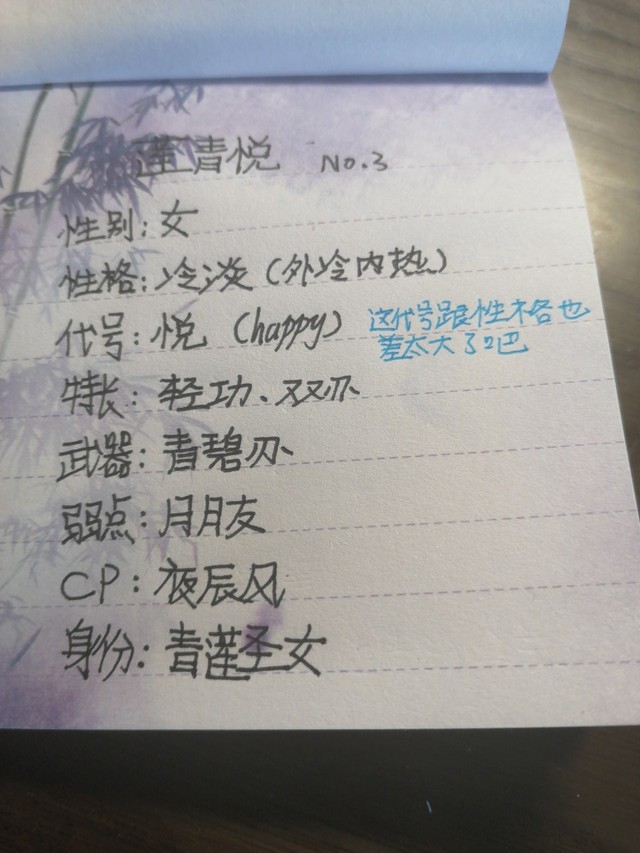 莲青悦 No.3
性别：女
性格：冷淡（外冷内热）
代号：悦（happy） 这代号跟性格也
差太大了吧
特长：轻功、双刃
武器：青碧刃
弱点：朋友
CP：夜辰风
身份：青莲圣女